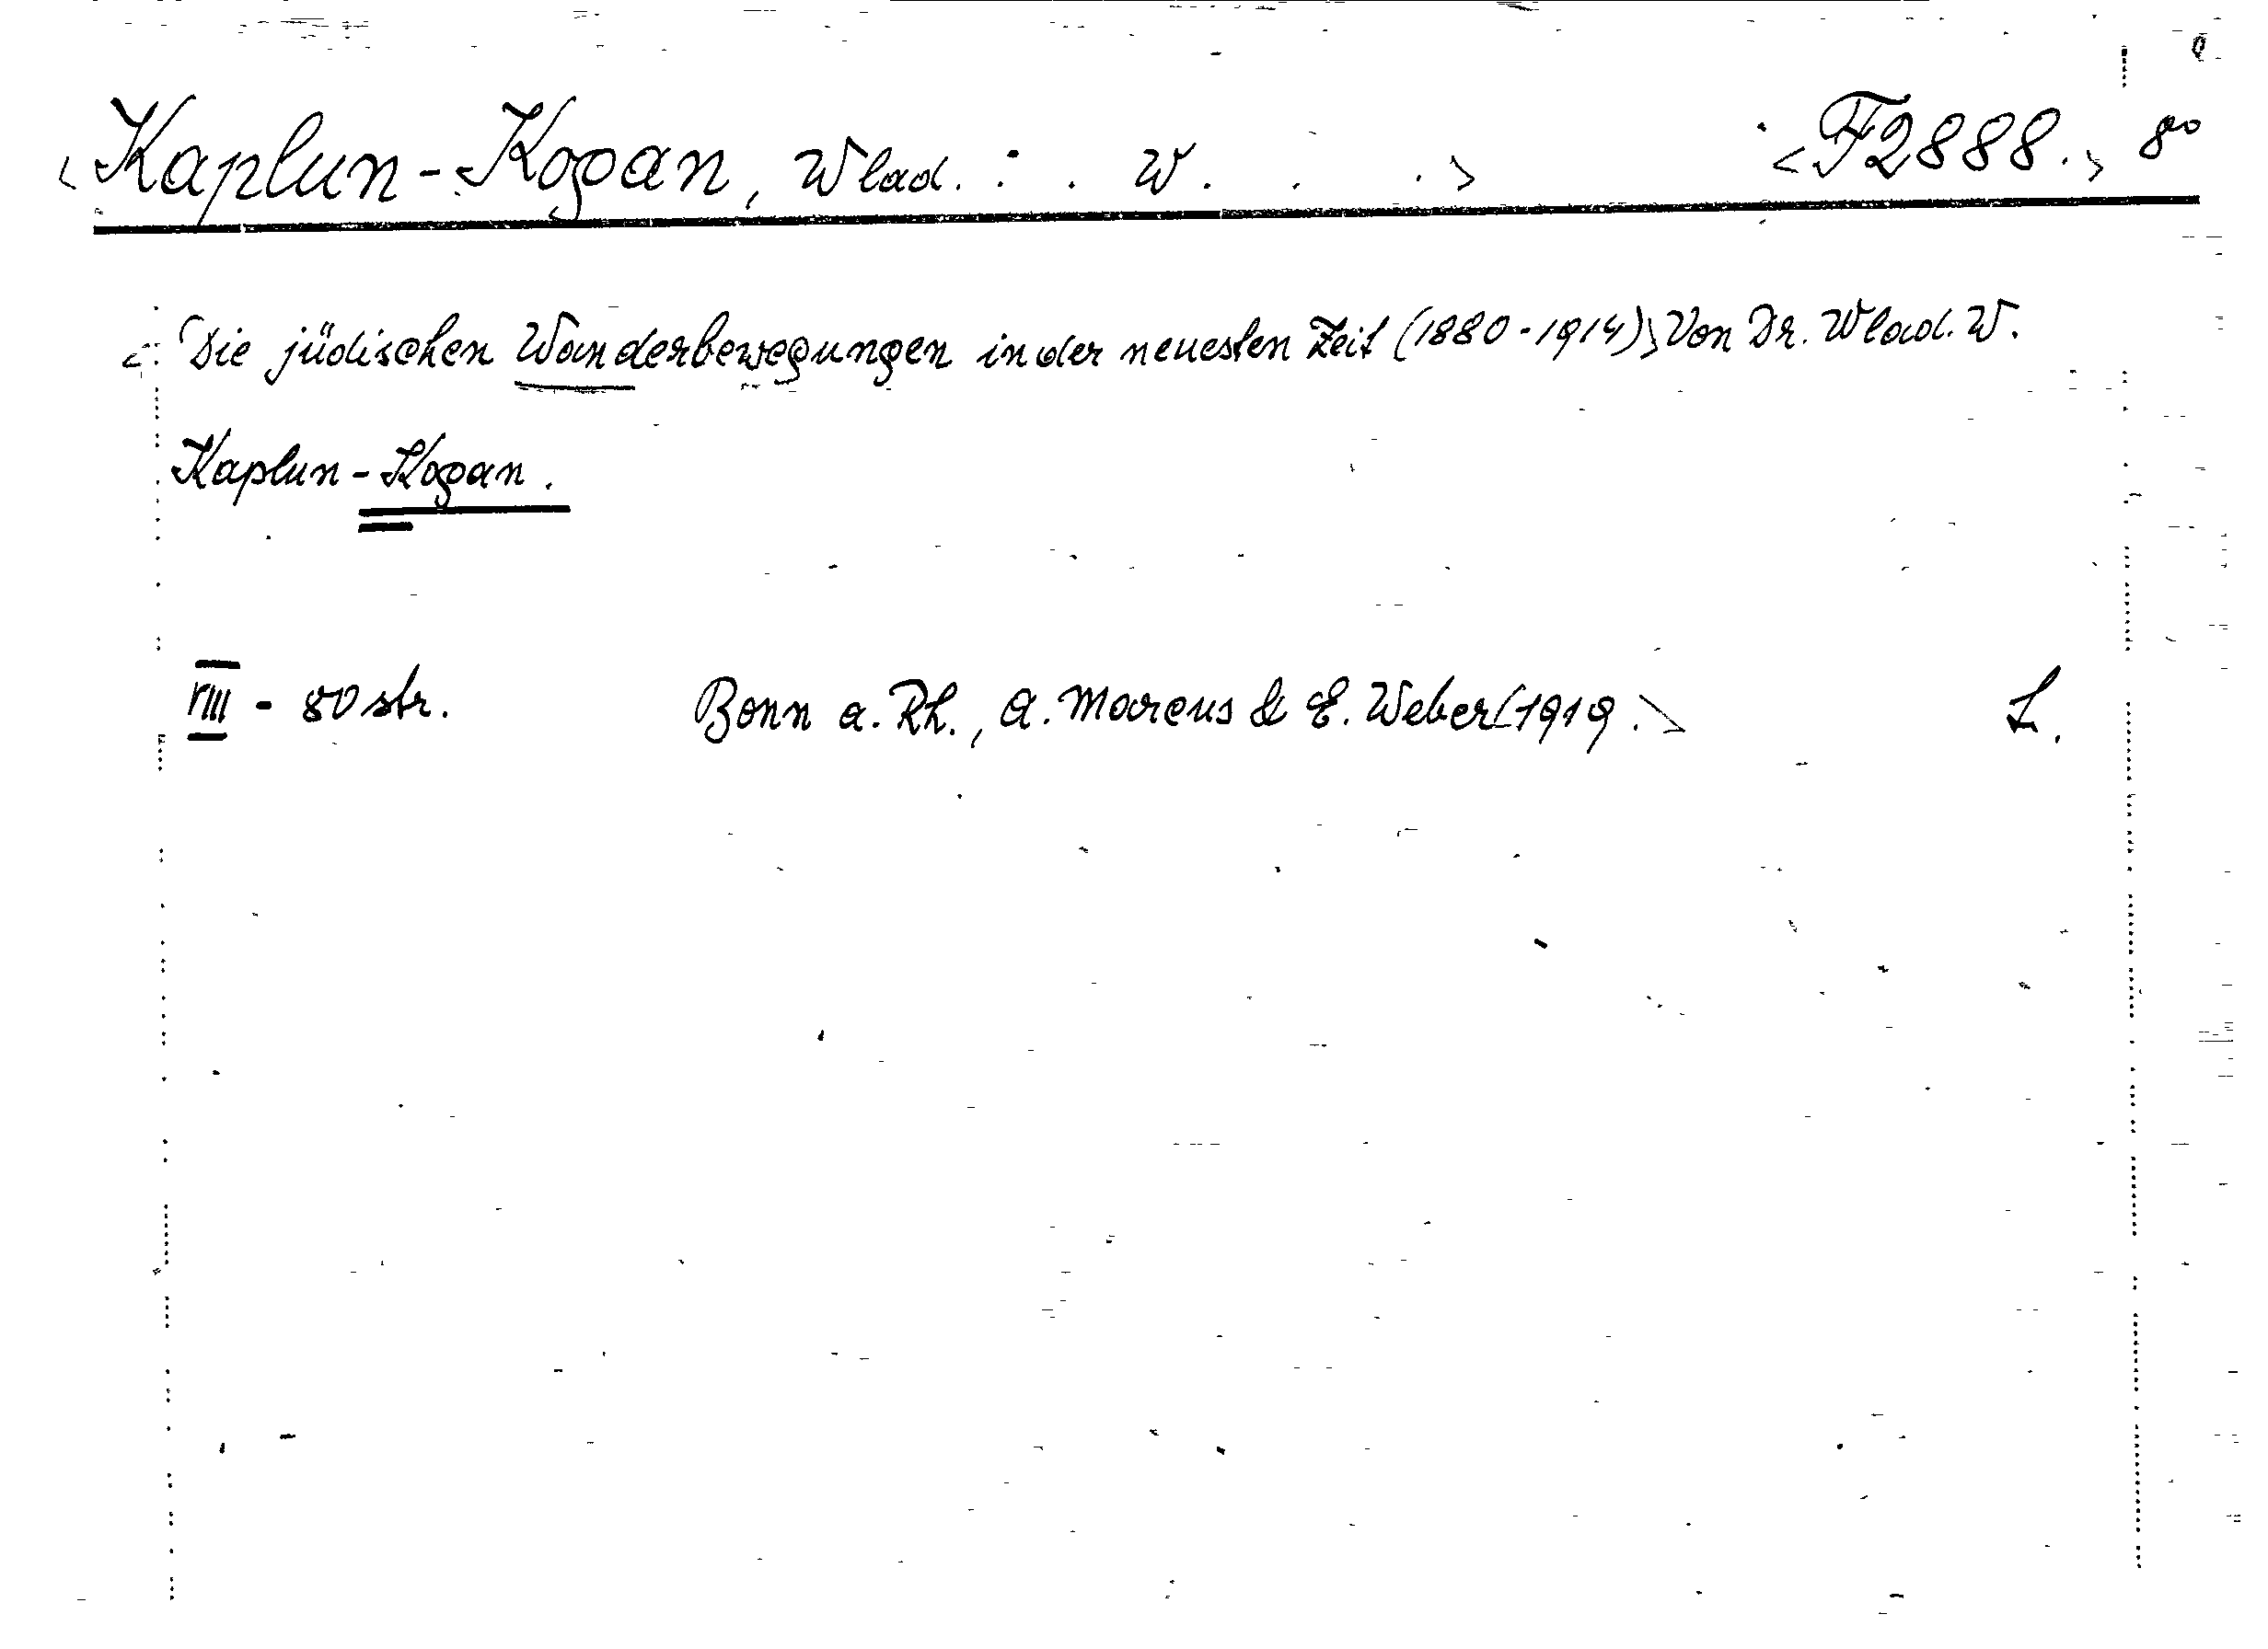 <Kaplun-Kogan, Wlad. : . W. . .> <F2888.> 8°
<Die jüdischen Wanderbewegungen in der neuesten Zeit (1880-1914)> Von Dr. Wlad. W.
Kaplun-Kogan.
VIII - 80 str. Bonn a. Rh., A. Marcus & E. Weber <1919.> L.